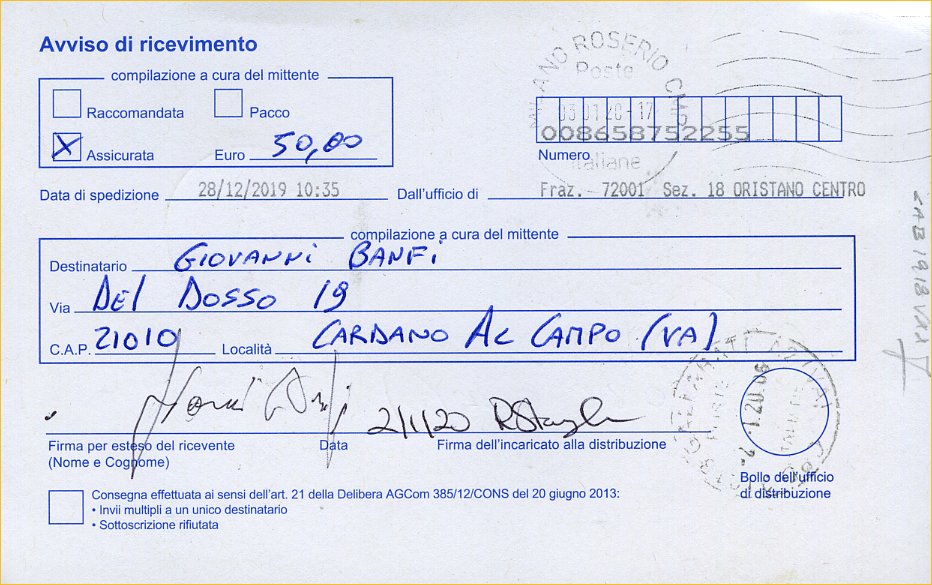 Avviso di ricevimento
compilazione a cura del mittente
Raccomandata Pacco
X Assicurata Euro 50,00
MILANO ROSERIO CMP
Poste
03 01 20 - 17
008658752255
Numero
Italiane
Data di spedizione 28/12/2019 10:35 Dall'ufficio di Fraz. - 72001 Sez. 18 ORISTANO CENTRO
compilazione a cura del mittente
Destinatario GIOVANNI BANFI
Via DEL DOSSO 19
C.A.P. 21010 Località CARDANO AL CAMPO (VA)
2/1/20
Firma per esteso del ricevente Data Firma dell'incaricato alla distribuzione
(Nome e Cognome)
Bollo dell'ufficio
di distribuzione
Consegna effettuata ai sensi dell'art. 21 della Delibera AGCom 385/12/CONS del 20 giugno 2013:
• Invii multipli a un unico destinatario
• Sottoscrizione rifiutata